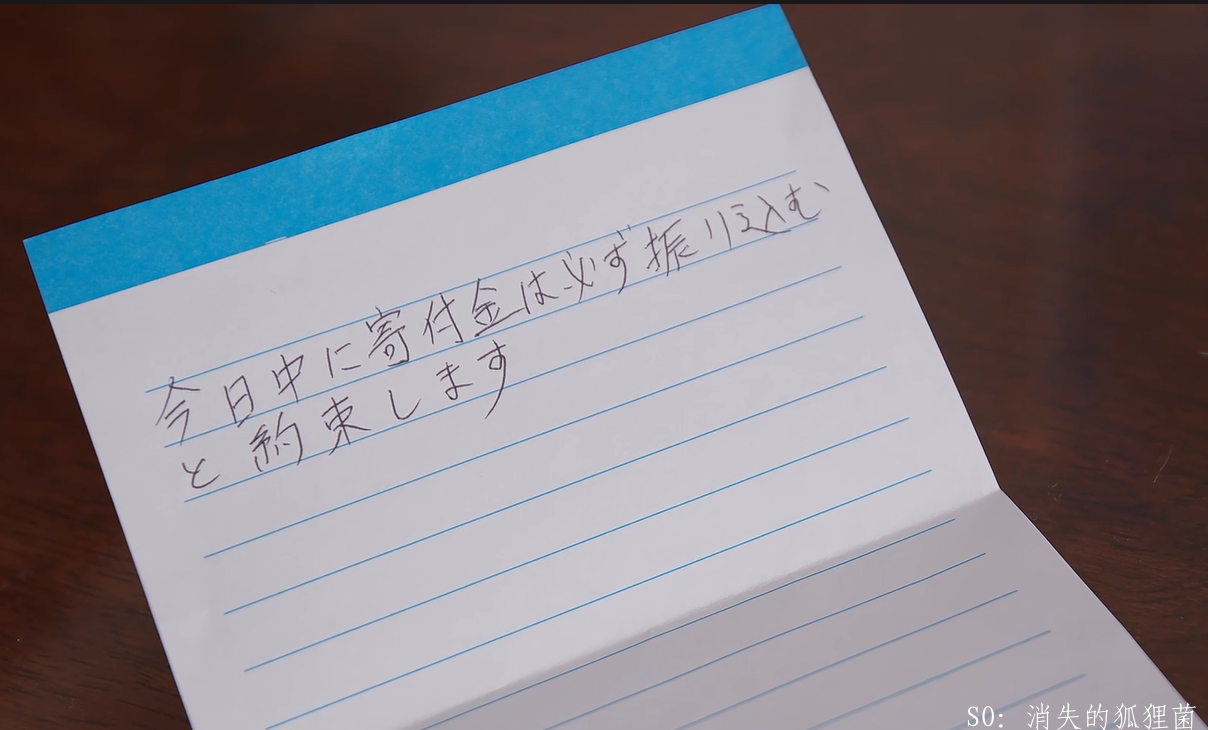 今日中に寄付金は必ず振り込む
と約束します
SO: 消失的狐狸菌